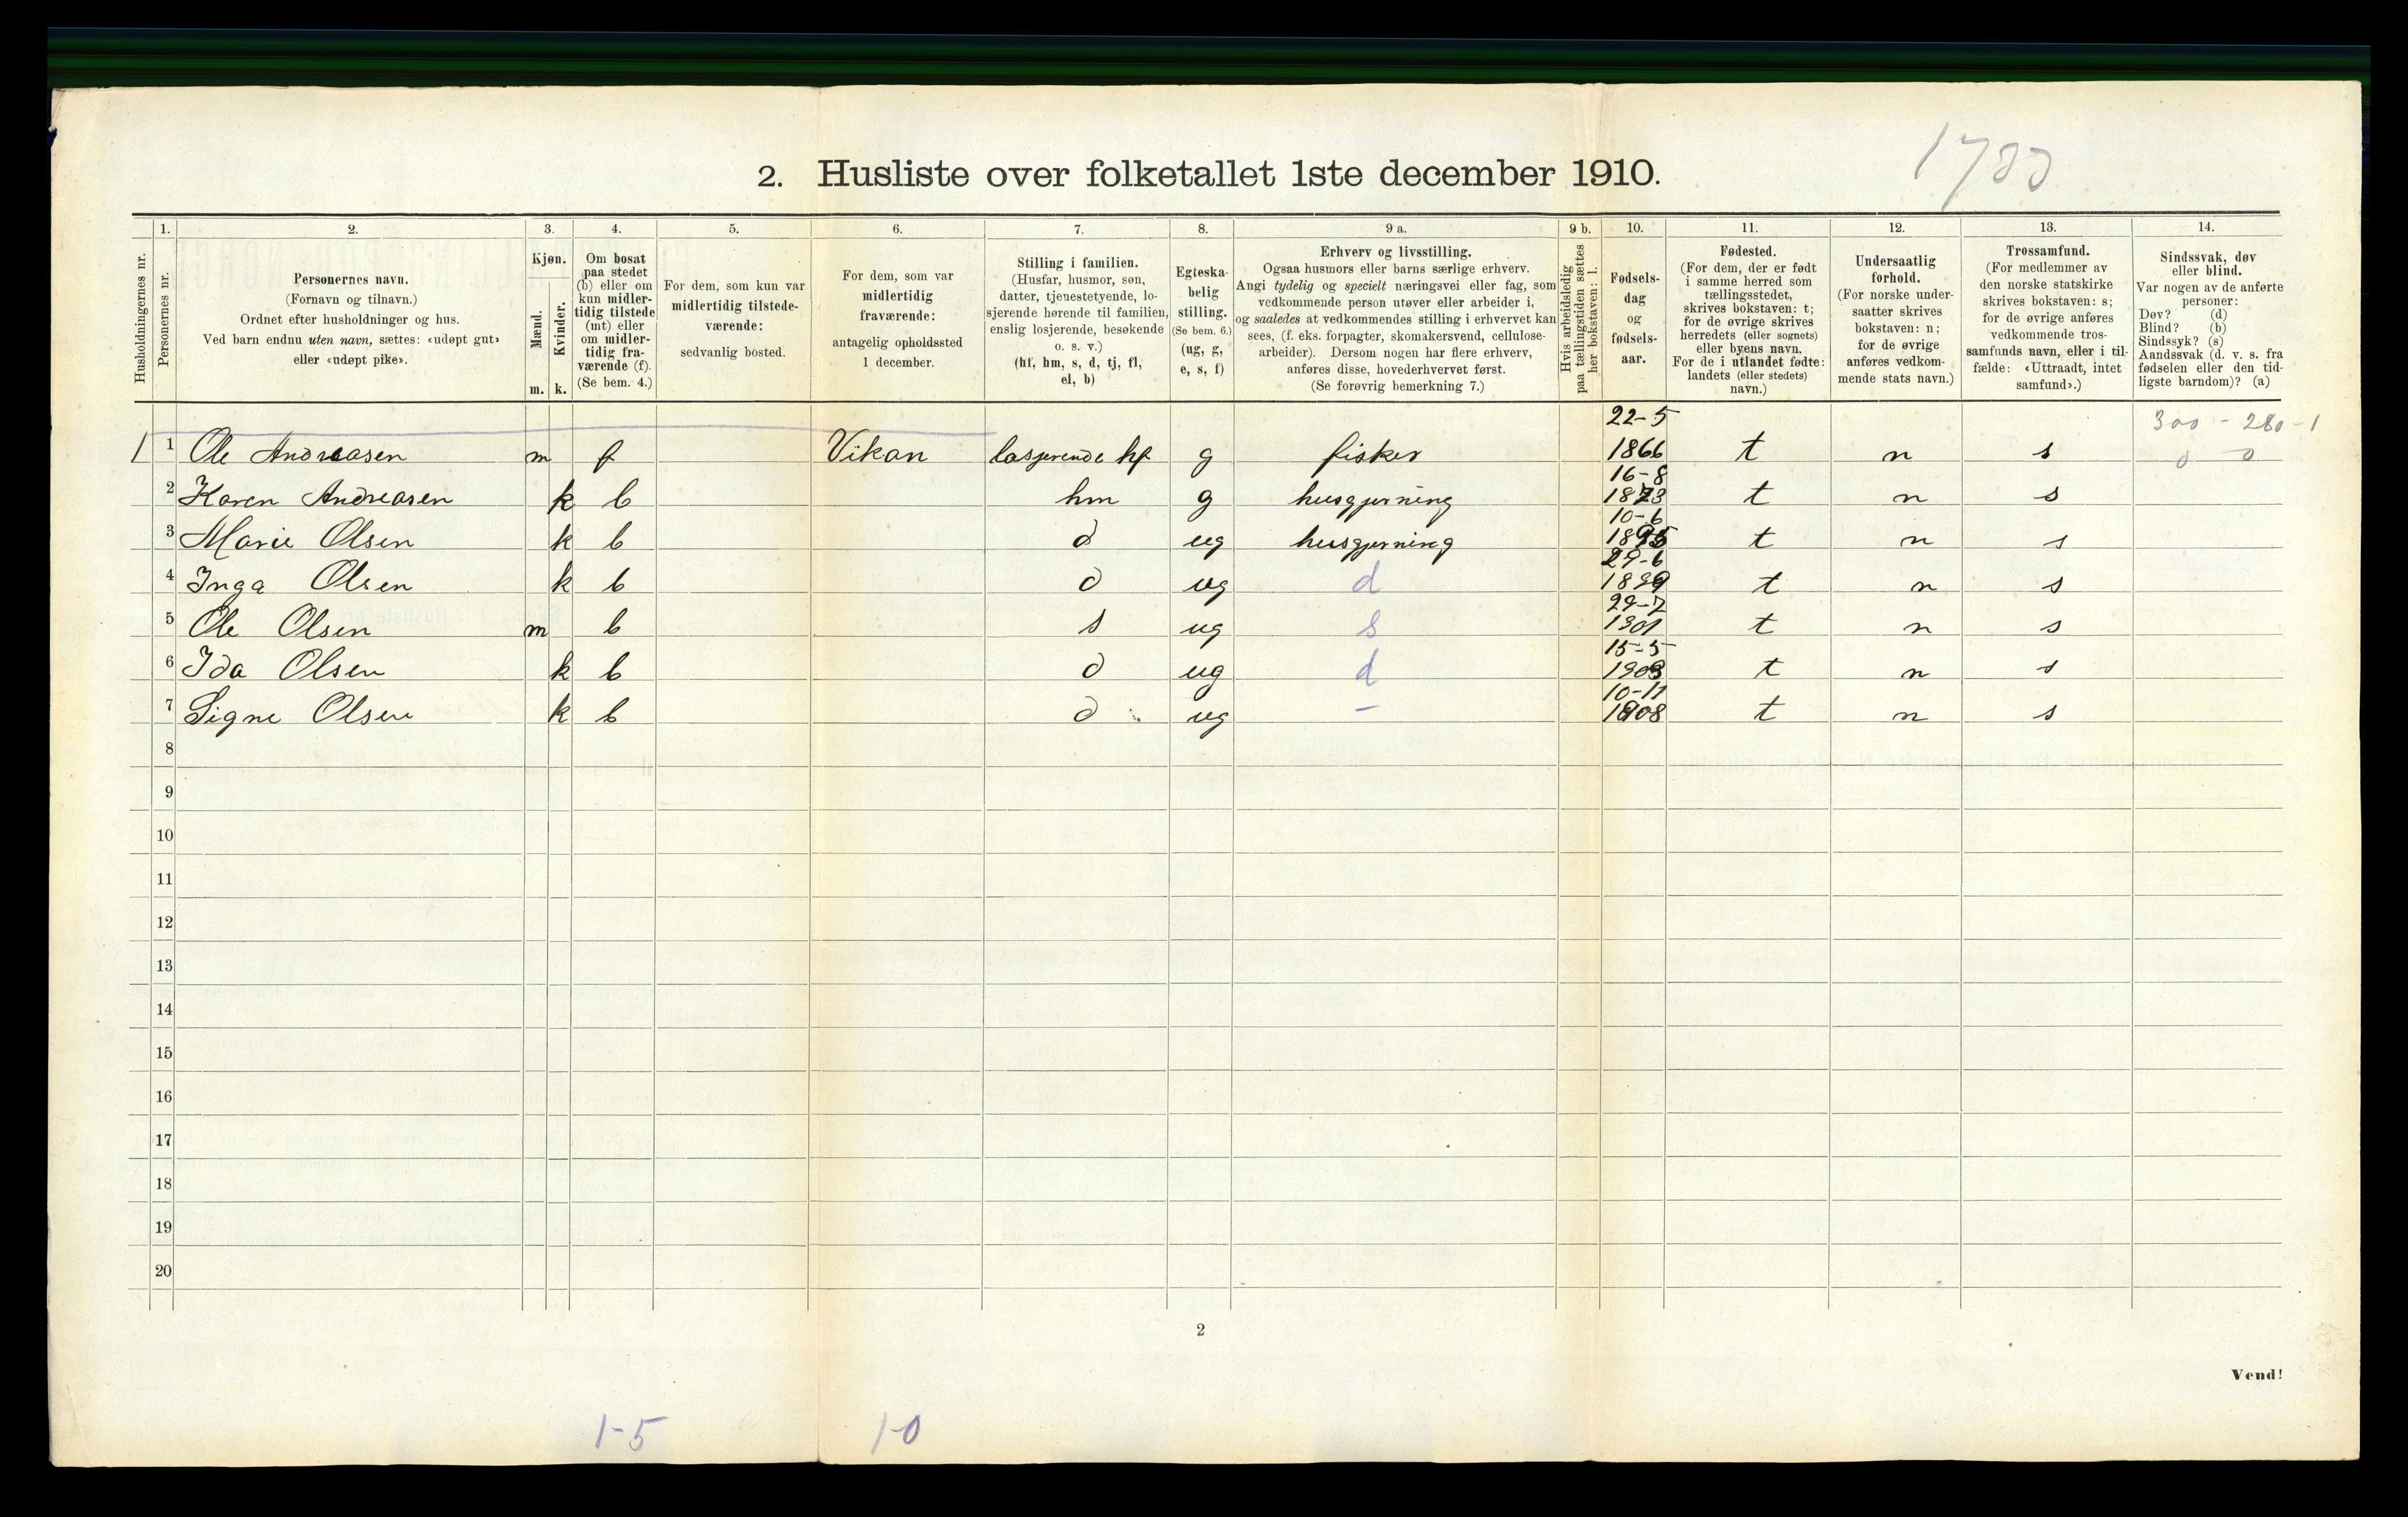 2. Husliste over folketallet 1ste december 1910.
1. 2. 3. 4. 5. 6. 7. 8. 9 a. 9 b. 10. 11. 12. 13. 14.
Husholdningernes nr.
Personernes nr.
Personernes navn.
(Fornavn og tilnavn.)
Ordnet efter husholdninger og hus.
Ved barn endnu uten navn, sættes: «udøpt gut»
eller «udøpt pike».
Kjøn.
Mænd.
m.
Kvinder.
k.
Om bosat
paa stedet
(b) eller om
kun midler-
tidig tilstede
(mt) eller
om midler-
tidig fra-
værende (f).
(Se bem. 4.)
For dem, som kun var
midlertidig tilstede-
værende:
sedvanlig bosted.
For dem, som var
midlertidig
fraværende:
antagelig opholdssted
1 december.
Stilling i familien.
(Husfar, husmor, søn,
datter, tjenestetyende, lo-
sjerende hørende til familien,
enslig losjerende, besøkende
o. s. v.)
(hf, hm, s, d, tj, fl,
el, b)
Egteska-
belig
stilling.
(Se bem. 6.)
(ug, g,
e, s, f)
Erhverv og livsstilling.
Ogsaa husmors eller barns særlige erhverv.
Angi tydelig og specielt næringsvei eller fag, som
vedkommende person utøver eller arbeider i,
og saaledes at vedkommendes stilling i erhvervet kan
sees, (f. eks. forpagter, skomakersvend, cellulose-
arbeider). Dersom nogen har flere erhverv,
anføres disse, hovederhvervet først.
(Se forøvrig bemerkning 7.)
Hvis arbeidsledig
paa tællingstiden sættes
her bokstaven: l.
Fødsels-
dag
og
fødsels-
aar.
Fødested.
(For dem, der er født
i samme herred som
tællingsstedet,
skrives bokstaven: t;
for de øvrige skrives
herredets (eller sognets)
eller byens navn.
For de i utlandet fødte:
landets (eller stedets)
navn.)
Undersaatlig
forhold.
(For norske under-
saatter skrives
bokstaven: n;
for de øvrige
anføres vedkom-
mende stats navn.)
Trossamfund.
(For medlemmer av
den norske statskirke
skrives bokstaven: s;
for de øvrige anføres
vedkommende tros-
samfunds navn, eller i til-
fælde: «Uttraadt, intet
samfund».)
Sindssvak, døv
eller blind.
Var nogen av de anførte
personer:
Døv? (d)
Blind? (b)
Sindssyk? (s)
Aandssvak (d. v. s. fra
fødselen eller den tid-
ligste barndom)? (a)
300 - 280 - 1
0 0
22-5
1 1 Ole Andreasen m f Vikan losjerende hf g fisker 1866 t n s
16-8
2 Karen Andreasen k b hm g husgjerning 1873 t n s
10-6
3 Marie Olsen k b d ug husgjerning 1895 t n s
29-6
4 Inga Olsen k b d ug d 1899 t n s
29-7
5 Ole Olsen m b s ug s 1901 t n s
15-5
6 Ida Olsen k b d ug d 1903 t n s
10-11
7 Signe Olsen k b d ug - 1908 t n s
8
9
10
11
12
13
14
15
16
17
18
19
20
2
Vend!
1-5 1-0